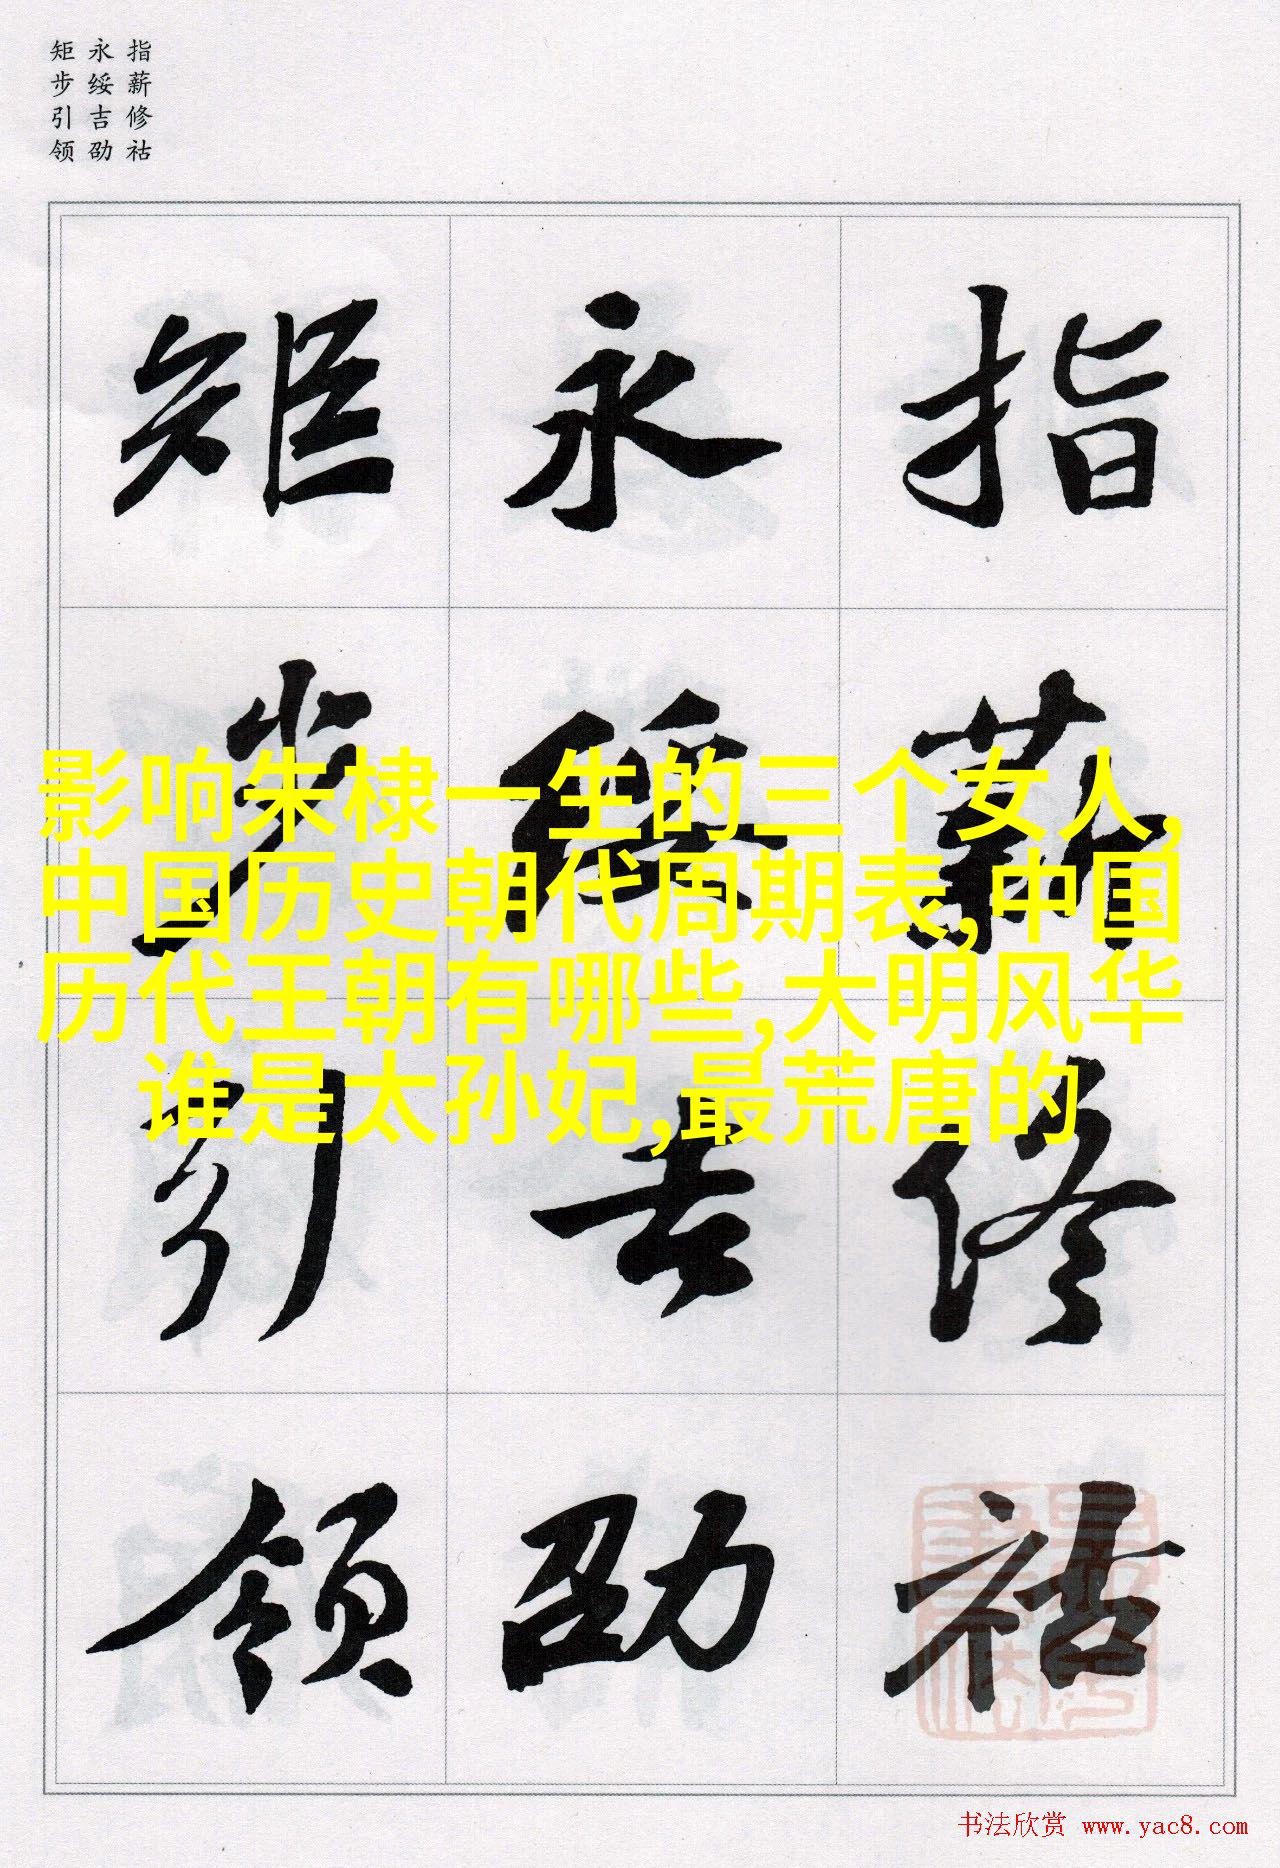 指薪修祜
永绥吉劭
矩步引领
指薪修祜
永绥吉劭
矩步引领
影响朱棣一生的三个女人,
中国历史朝代周期表,中国
历代王朝有哪些,大明风华
谁是太孙妃,最荒唐的
书法欣赏 www.yac8.com